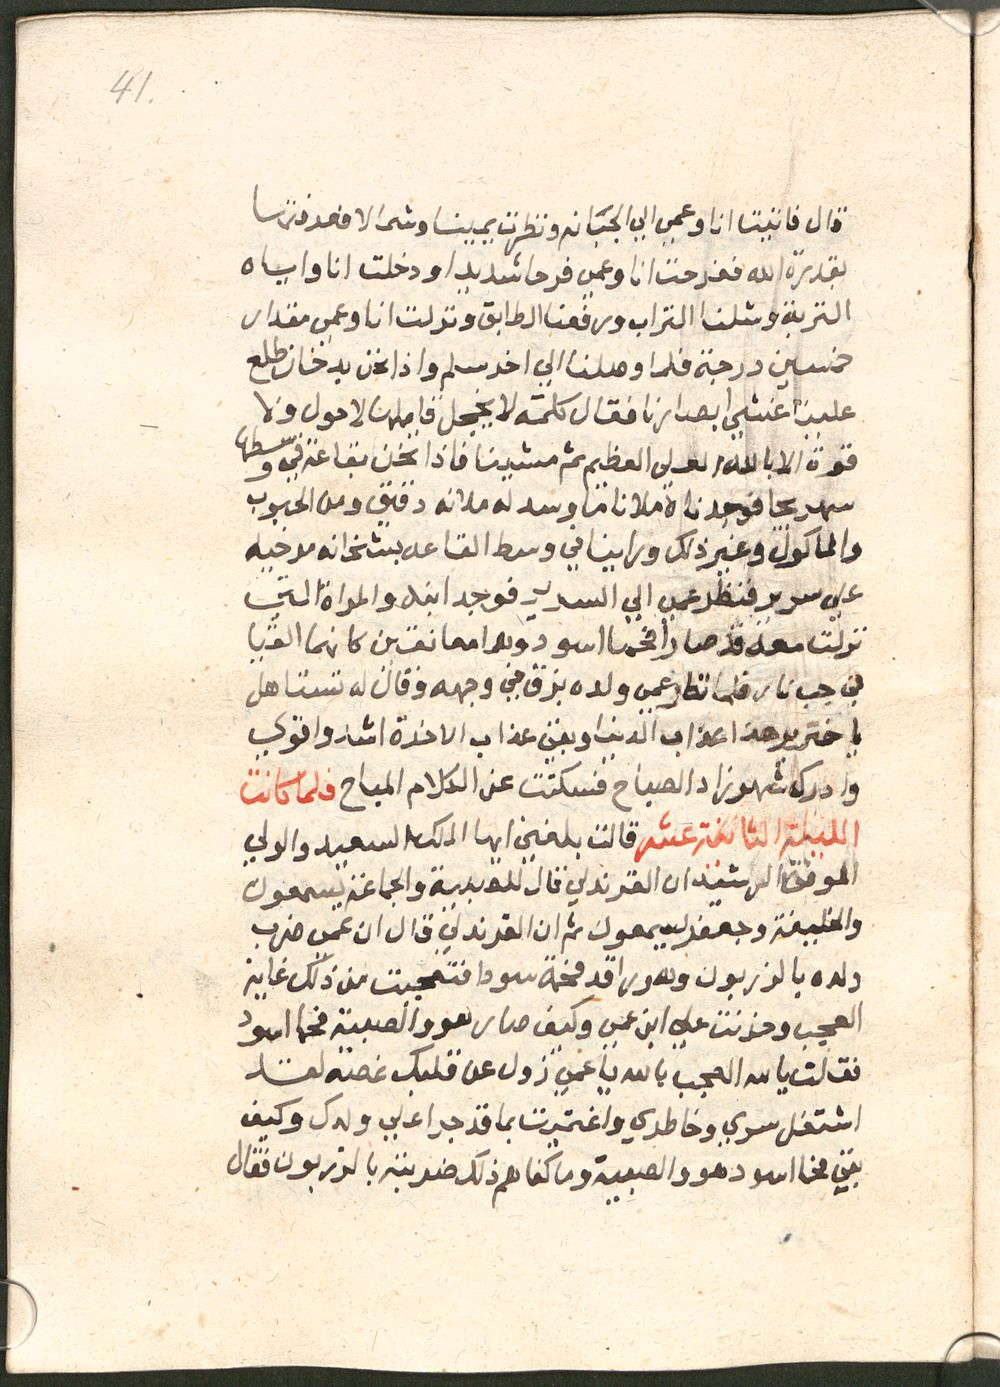 41.
قال فاتيت انا وعمي الي الجبانه ونظرت يمينا وشمالا فعرفتها
بقدرة الله ففرحت انا وعمي فرحا شديدا ودخلت انا واياه
التربة وشلنا التراب ورفعنا الطابق ونزلت انا وعمي مقدار
خمسين درجة فلما وصلنا الي اخر سلم واذا نحن بدخان طلع
علينا غشي ابصارنا فقال كلمة لا يخجل قايلها لا حول ولا
قوة الا بالله العلي العظيم ثم مشينا فاذا نحن بقاعة في وسطها
سهريجا فوجدناه ملانا ما وسله ملانه دقيق ومن الحبوب
والماكول وغير ذلك وراينا في وسط القاعه بشخانه مرخيه
علي سرير فنظر عمي الي السرير فوجد ابنه والمراة التي
نزلت معه قد صارا فحما اسود وهما معانقين كانهما القيا
في جب نار فلما نظر عمي ولده بزق في وجهه وقال له تستاهل
يا خنزير هذا عذاب الدنيا وبقي عذاب الاخرة اشد واقوي
وادرك شهرزاد الصباح فسكتت عن الكلام المباح فلما كانت
الليلة الثالثة عشر قالت بلغني ايها الملك السعيد والولي
الموفق الرشيد ان القرندلي قال للصبية والجماعة يسمعون
والخليفة وجعفر يسمعون ثم ان القرندلي قال ان عمي ضرب
ولده بالزربون وهو راقد فحمة سودا فتعجبت من ذلك غاية
العجب وحزنت علي ابن عمي وكيف صار هو والصبية فحما اسود
فقلت يا لله العجب بالله يا عمي زول عن قلبك غصة لقد
اشتغل سري وخاطري واغتميت بما قد جرا علي ولدك وكيف
بقي فحما اسود هو والصبية وما كفاهم ذلك ضربته بالزربون فقال